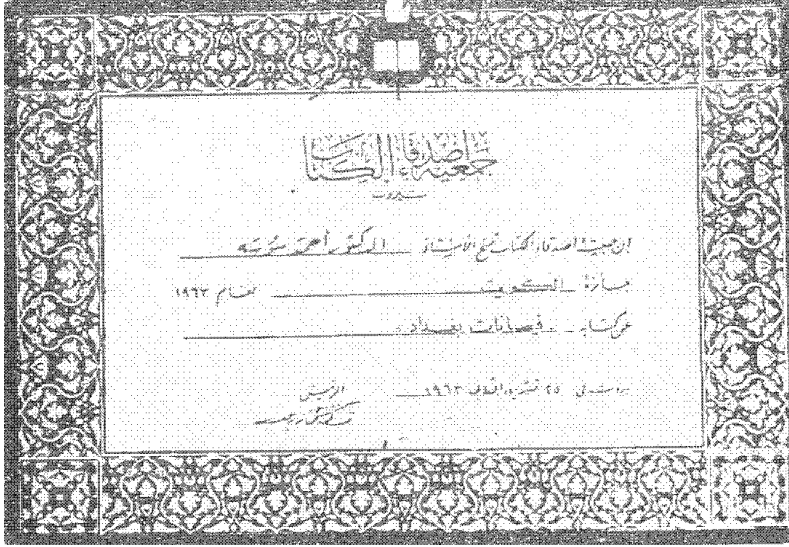 جمعية أصدقاء الكتاب
بيروت
ان جمعية اصدقاء الكتاب تمنح الأستاذ الدكتور أحمد سوسه
جائزة الكويت لعام ١٩٦٣
عن كتابه فيضانات بغداد
بيروت في ٢٥ تشرين الثاني ١٩٦٣
الرئيس